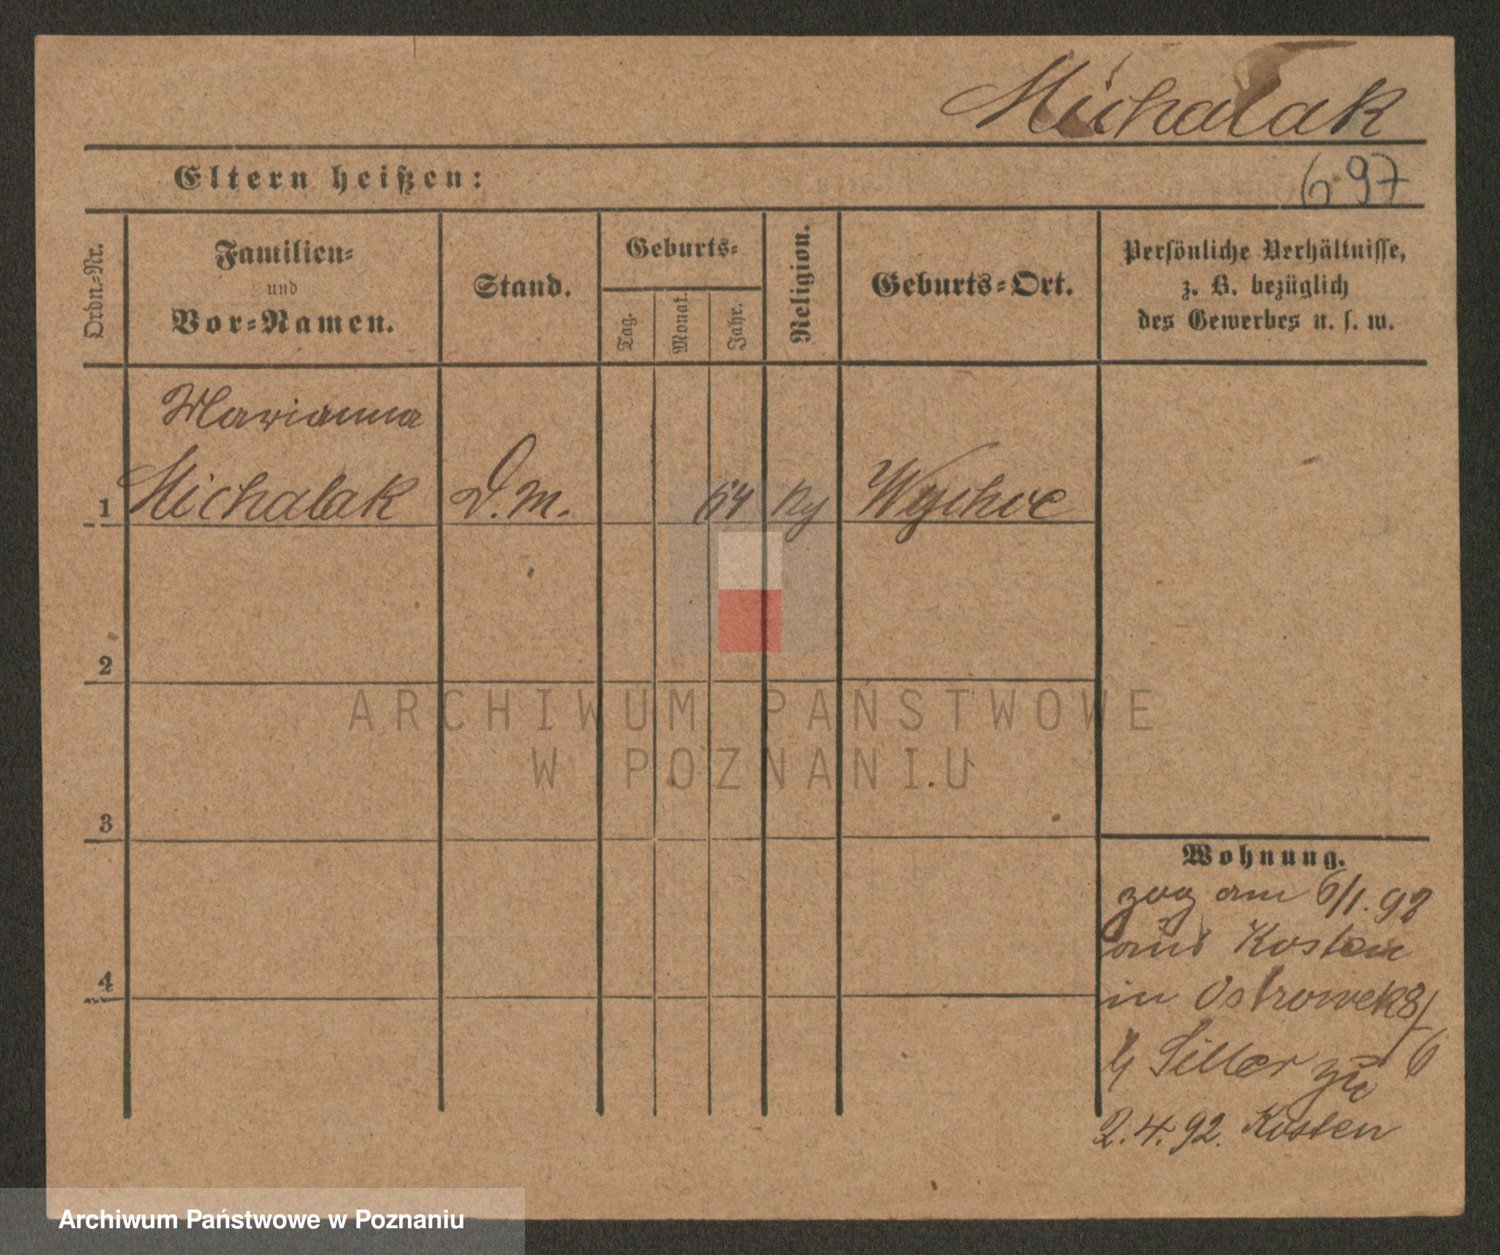 Michalak
Eltern heißen:
697
Ordn.-Nr.
Familien-
und
Vor-Namen.
Stand.
Geburts-
Tag.
Monat.
Jahr.
Religion.
Geburts-Ort.
Persönliche Verhältnisse,
z. B. bezüglich
des Gewerbes u. s. w.
Marianna
1 Michalak D.M. 64
2
ARCHIWUM PAŃSTWOWE
W POZNANIU
3
Wohnung.
zog am 6/1.92
aus Kosten
in Ostrowek 8/6
Siller zu
4
2.4.92. Kosten
Archiwum Państwowe w Poznaniu